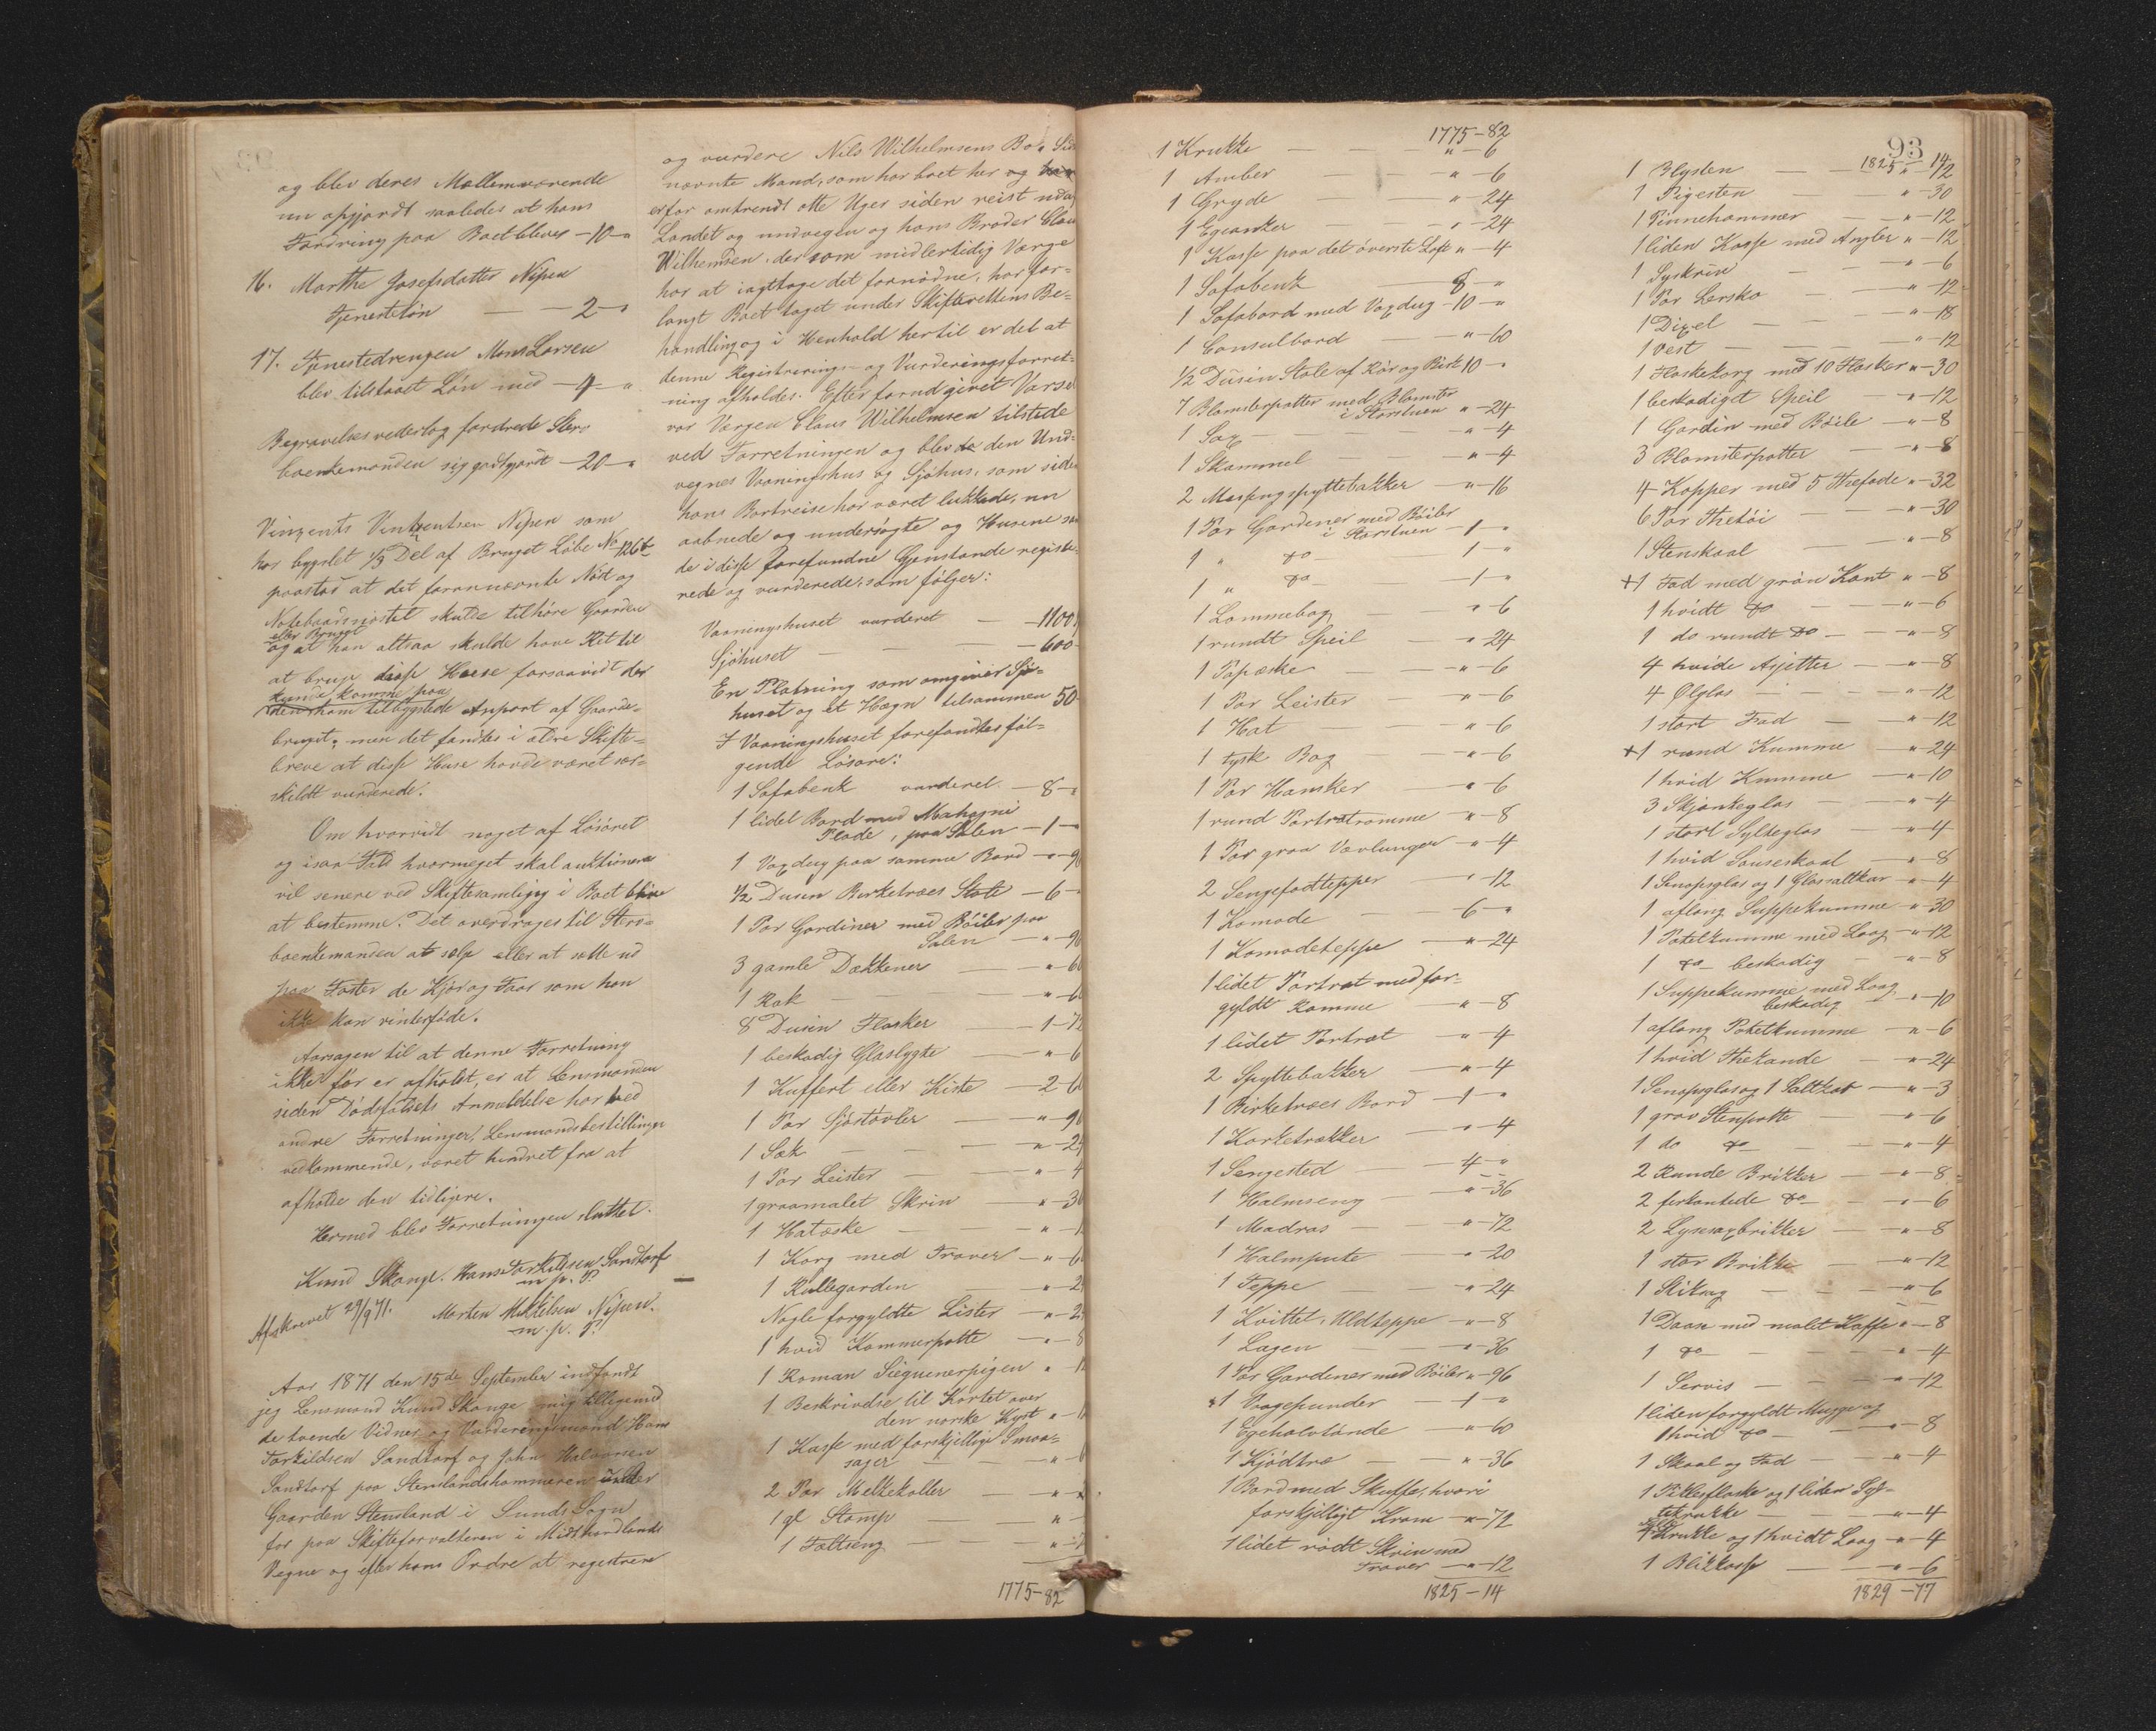 og blev deres Mellemværende
nu opgjordt saaledes at hans
Fordring paa Boet bliver -10-"
16. Marthe Josefsdatter Nipen
Tjenesteløn — — 2-"
17. Tjenestedrengen Mons Larsen
blev tilstaaet Løn med — 4 - "
Begravelsesvederlag fordrede Stervboenkemanden
sig godtgjordt — 20 - "
Vinzents Vintzentsen Nipen som
har bygslet 1/3 Del af Bruget Løbe No 126b
paastod at det forannævnte Nøst og
Notebaadnøstet skulde tilhøre Gaarden
eller Bruget
og at han altsaa skulde have Ret til
at bruge disse Huse forsaavidt der
kunde komme paa
den ham tilbygslede Anpart af Gaardebruget;
men det fandtes i ældre Skiftebreve
at disse Huse havde været særskildt
vurderede.
Om hvorvidt noget af Løsøret
og isaa Fald hvormeget skal auktioneres
vil senere ved Skiftesamling i Boet blive
at bestemme. Det overdrages til Stervboenkemanden
at sælge eller at sette ud
paa Foster de Kjør og Faar som han
ikke kan vinterføde.
Aarsagen til at denne Forretning
ikke før er afholdt, er at Lensmanden
siden Dødsfaldets Anmeldelse har ved
andre Forretninger, Lensmandsbestillingen
vedkommende, været hindret fra at
afholde den tidligere.
Hermed blev Forretningen sluttet.
Knud Skauge. Hans Torkildsen Sandtorf
m. p. P.
Afskrevet 29/9 71. Morten Mikkelsen Nipen.
m. p. P.
Aar 1871 den 15de September indfandt
jeg Lensmand Knud Skauge mig tilligemed
de tvende Vidner og Vurderingsmænd Hans
Torkildsen Sandtorf og John Halvorsen
Sandtorf paa Stenslandshammeren under
Gaarden Stensland i Sunds Sogn
for paa Skifteforvalteren i Midthordlands
Vegne og efter hans Ordre at registrere
og vurdere Nils Wilhelmsens Bo.
nævnte Mand, som har boet her og
er for omtrendt otte Uger siden reist udaf
Landet og undvegen og hans Broder Claus
Wilhemsen, der som midlertidig Værge
har at iagttage det fornødne, har forlangt
Boet taget under Skifterettens Behandling
og i Henhold hertil er det at
denne Registrerings- og Vurderingsforretning
afholdes. Efter forudgivet Varsel
var Værgen Claus Wilhelmsen tilstede
ved Forretningen og blev da den Undvegnes
Vaaningshus og Sjøhus, som siden
hans Bortreise har været lukkede, nu
aabnede og undersøgte og Husene samt
de i disse forefundne Gjenstande registrerede
og vurderede, som følger:
Vaaningshuset vurderet — 1100
Sjøhuset — — 600
En Platning som omgiver Sjøhuset
og et Hægn tilsammen 50
I Vaaningshuset forefandtes følgende
Løsøre:
1 Sofabenk vurderet — 8 - "
1 lidet Bord med Mahogni
Plade, paa Salen — 1 -
1 Voxdug paa samme Bord — " - 9
1/2 Dusin Birketræes Stole — 6 -
1 Par Gardiner med Bøiler paa
Salen — " - 9
3 gamle Dækkener — " - 6
1 Rak — " - 6
8 Dusin Flasker — 1 - 72
1 beskadig Glaslygte — " - 6
1 Kuffert eller Kiste — 2 - 6
1 Par Sjøstøvler — " - 9
1 Sæk — " - 2
1 Par Leister — " - 4
1 graamalet Skrin — " - 3
1 Hatæske — " - 1
1 Korg med Traver — " - 6
1 Rullegarden — " - 2
Nogle forgyldte Lister — " - 2
1 hvid Kammerpotte — " - 8
1 Roman Siguenerpigen " - 1
1 Beskrivelse til Kartet over
den norske Kyst "
1 Kasse med forskjellige Smaasager
— "
2 Par Melkekoller — "
1 gl Stamp — "
1 Feltseng — "
1775-82
1775-82
1 Krukke — " - 6
1 Amber — " - 6
1 Gryde — " - 24
1 Egeanker — " - 24
1 Kasse paa det øverste Loft " - 4
1 Sofabenk — 8 - "
1 Sofabord med Voxdug - 10 - "
1 Consulbord — " - 60
1/2 Dusin Stole af Rør og Birk 10 - "
7 Blomsterpotter med Blomster
i Storstuen " - 24
1 Sax — " - 4
1 Skammel — " - 4
2 Messingspyttebakker — " - 16
1 Par Gardener med Bøiler
i Storstuen - 1 - "
1 " do 1 - "
1 " do - 1 - "
1 Lommebog — " - 6
1 rundt Speil — " - 24
1 Papæske — " - 6
1 Par Leister — " - 6
1 Hat — " - 6
1 tysk Bog — " - 6
1 Par Hansker — " - 6
1 rund Portrætramme — " - 8
1 Par graa Vævlunger — " - 4
2 Sengefodtepper — " - 12
1 Komode — 6 - "
1 Komodeteppe — " - 24
1 lidet Portræt med forgyldt
Ramme — " - 8
1 lidet Portræt — " - 4
2 Spyttebakker — " - 4
1 Birketræes Bord — 1 - "
1 Korketrækker — " - 4
1 Sengested — 4 - "
1 Halmseng — " - 36
1 Madras — " - 72
1 Halmpute — " - 20
1 Teppe — " - 24
1 Kvittet, Uldteppe — " - 8
1 Lagen — " - 36
1 Par Gardener med Bøiler " - 96
x1 Vogepunder — 1 - "
1 Egehalvtønde — " - 60
1 Kjødtræ — " - 36
1 Bord med Skuffe, hvori
forskjelligt Kram — " - 72
1 lidet rødt Skrin med
Traver — " - 12
1825-14
93
1825 - 14
1 Blysten — " - 12
1 Pigesten — " - 30
1 Pinnehammer — " - 12
1 liden Kasse med Angler " - 12
1 Syskrin — " - 6
1 Par Lersko — " - 12
1 Dixel — " - 18
1 Vest — " - 12
1 Flaskekorg med 10 Flasker " - 30
1 beskadiget Speil — " - 12
1 Gardin med Bøile — " - 8
3 Blomsterpotter — " - 8
4 Kopper med 5 Thefade " - 32
6 Par Thetøi — " - 30
1 Stenskaal — " - 8
+1 Fad med grøn Kant " - 8
1 hvidt do — " - 6
1 do rundt do — " - 8
4 hvide Asjetter — " - 8
4 Ølglas — " - 12
1 stort Fad — " - 12
+1 rund Kumme — " - 24
1 hvid Kumme — " - 10
3 Skjænkeglas — " - 4
1 stort Sylteglas — " - 4
1 hvid Sauseskaal — " - 8
1 Senopsglas og 1 Glassaltkar " - 4
1 aflang Suppekumme " - 30
1 Potetkumme med Laag " - 12
1 do beskadig — " - 8
1 Suppekumme med Laag
beskadig — " - 10
1 aflang Potetkumme — " - 6
1 hvid Thekande — " - 24
1 Senopsglas og 1 Saltkar — " - 3
1 grov Stenpotte — " - 6
1 do do — " - 4
2 Runde Brikker — " - 8
2 firkantede do — " - 6
2 Lysesaxbrikker — " - 8
1 stor Brikke — " - 12
1 Stiksag — " - 6
1 Daase med malet Kaffe " - 8
1 do — " - 4
1 Servis — " - 12
1 liden forgyldt Mugge og
1 hvid do — " - 8
1 Skaal og Fad — " - 4
1 Pillesflaske og 1 liden Syltekrukke
— " - 4
1 Krukke og 1 hvidt Laag " - 4
1 Blikkasse — " - 6
1829 - 77